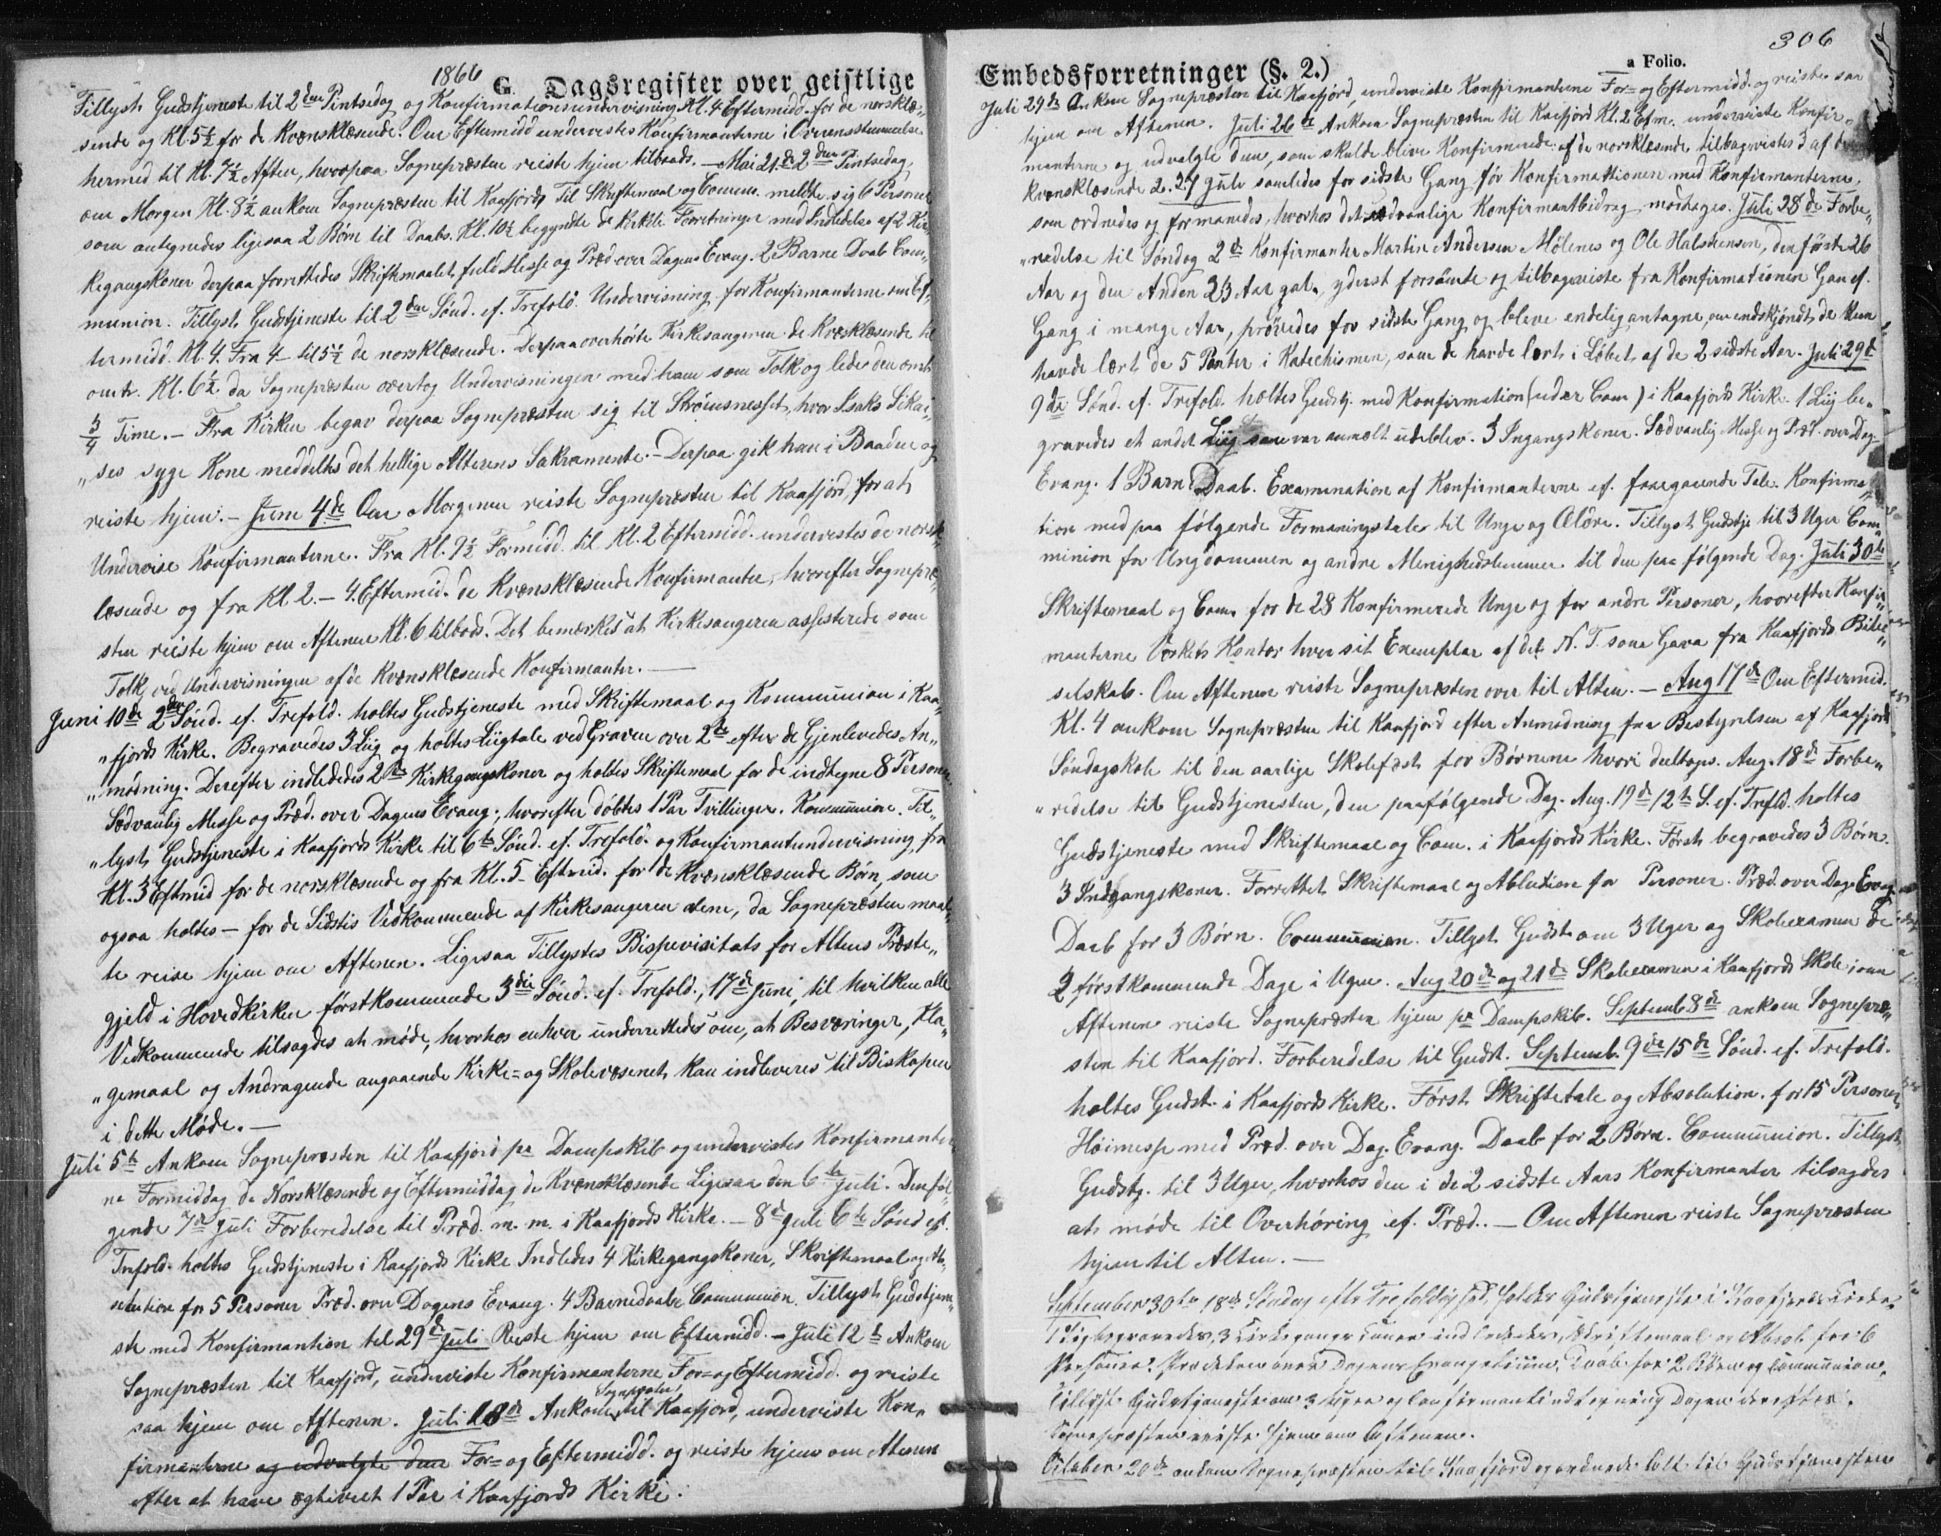 1866
G. Dagsregister over geistlige
Tillyst Gudstjeneste til 2den Pintsedag og Konfirmationsundervisning Kl. 4 Eftermidd. for de norsklæ-
sende og Kl 5½ for de Kvænsklæsende. Om Eftermidd undervistes Konfirmanterne i Overensstemmelse
hermed til Kl. 7½ Aften, hvorpaa Sognepræsten reiste hjem tilbaads. – Mai 21de 2den Pintsedag,
om Morgen Kl. 8½ ankom Sognepræsten til Kaafjord. Til Skriftemaal og Commun. meldte sig 6 Personer
som antegnedes ligesaa 2 Børn til Daab. Kl. 10½ begyndte de kirkel. Forretninger med Indledelse af 2 Kir-
kegangskoner derpaa forrettedes Skriftemaalet, fuld Messe og Præd over Dagens Evang. 2 Barne Daab Com-
munion. Tillyst Gudstjeneste til 2den Sønd. ef. Trefold. Undervisning for Konfirmanterne om Ef-
termidd. Kl. 4. Fra 4 – til 5½ de norsklæsende. Derpaa overhørte Kirkesangeren de Kvænsklæsende til
omtr. Kl. 6½ da Sognepræsten overtog Undervisningen med ham som Tolk og lededen omtr
¾ Time. – Fra Kirken begav derpaa Sognepræsten sig til Strømsnesset, hvor Isaks
ses syge Kone meddeltes det hellige Alterens Sakramente. – Derpaa gik han i Baaden og
reiste hjem. – Juni 4de Om Morgenen reiste Sognepræsten til Kaafjord for at
Undervise Konfirmanterne. Fra Kl. 9½ Formidd. til Kl. 2 Eftermidd. undervistes de norsk-
læsende og fra Kl 2. – 4. Eftermid. de Kvænsklæsende Konfirmanter, hvorefter Sognepræ-
sten reiste hjem om Aftenen Kl. 6 tilbaads. Det bemærkes at Kirkesangeren assisterede som
Tolk ved Undervisningen af de Kvænsklæsende Konfirmanter. –
Juni 10de 2den Sønd. ef. Trefold. holtes Gudstjeneste med Skriftemaal og Kommunion i Kaa-
fjords Kirke. Begravedes 3 Liig og holtes Liigtale ved Graven over 2de efter de Gjenlevedes An-
modning. Derefter indlededes 2de Kirkegangskoner og holtes Skriftemaal for de indtegne 8 Personer
Sædvanlig Messe og Præd. over Dagens Evang., hvorefter døbtes 1 Par Tvillinger. Kommunion. Til-
lyst Gudstjeneste i Kaafjords Kirke til 6te Sønd. ef. Trefold. og Konfirmantundervisning fra
Kl. 3 Eftmid for de norsklæsende og fra Kl. 5 Eftmid. for de Kvænsklæsende Børn, som
ogsaa holtes – for de Sidstes Vedkommende af Kirkesangeren alene, da Sognepræsten maat-
te reise hjem om Aftenen. Ligesaa Tillystes Bispevisitats for Altens Præste-
gjeld i Hovedkirken førstkommende 3die Sønd. ef. Trefold., 17de Juni, til hvilken alle
Vedkommende tilsagdes at møde, hvorhos enhver underrettedes om, at Besværinger, Kla-
gemaal og Andragende angaaende Kirke- og Skolevæsenet kan indleveres til Biskopen
i dette Møde. –
Juli 5te Ankom Sognepræsten til Kaafjord pr Dampskib og undervistes Konfirmanter-
ne Formiddag de Norsklæsende og Eftermiddag de Kvænsklæsende Ligesaa den 6te Juli. Den føl-
gende 7de Juli Forberedelse til Præd. m. m. i Kaafjords Kirke. – 8de Juli 6te Sønd ef.
Trefold. holtes Gudstjeneste i Kaafjords Kirke Indledes 4 Kirkegangskoner, Skriftemaal og Ab-
solution for 5 Personer Præd. over Dagens Evang. 4 Barnedaab Communion. Tillyst Gudstjene-
ste med Konfirmantion til 29de Juli Reiste hjem om Eftermidd. – Juli 12te Ankom
Sognepræsten til Kaafjord, underviste Konfirmanterne For- og Eftermidd. og reiste
saa hjem om Aftenen. Juli 18de Ankom Sognepræsten til Kaafjord, underviste Kon-
firmanterne og udvalgte dem For- og Eftermidd. og reiste hjem om Aftenen
efter at have ægteviet 1 Par i Kaafjords Kirke.
306
Embedsforretninger (§. 2.)
a Folio.
Juli 24de Ankom Sognepræsten til Kaafjord, underviste Konfirmanterne For- og Eftermidd. og reiste saa
hjem om Aftenen. Juli 26de Ankom Sognepræsten til Kaafjord Kl. 2 Efm. underviste Konfir-
manterne og udvalgte dem, som skulde blive Konfirmerede af de norsklæsende tilbagevistes 3 af de
kvænsklæsende 2. 27 Juli samledes for sidste Gang før Konfirmationen med Konfirmanterne,
som ordnedes og formanedes, hvorhos det sædvanlige Konfirmantbidrag modtages. Juli 28de Forbe-
redelse til Søndag 2de Konfirmanter Martin Andersen Mølenes og Ole Halstensen, den første 26
Aar og den Anden 23 Aar gal. yderst forsømte og tilbageviste fra Konfirmationen Gan ef.
Gang i mange Aar, prøvedes for sidste Gang og bleve endelig antagne, om endskjøndt de kun
havde lært de 5 Parter i Katechismen, som de havde lært i Løbet af de 2 sidste Aar. Juli 29de
9de Sønd. ef. Trefold. holtes Gudstj. med Konfirmation (uden Com) i Kaafjords Kirke. 1 Liig be-
gravedes et andet Liig som var anmeldt udeblev. 3 Ingangskoner. Sædvanlig Messe og Præd. over Dag.
Evang. 1 Barne Daab. Examination af Konfirmanterne ef. foregaaende Tale. Konfirma-
tion med paa følgende Formaningstaler til Unge og Ældre. Tillyst Gudstje til 3 Uger Com-
minion for Ungdommen og andre Menighedslemmer til den paa følgende Dag. Juli 30te
Skriftemaal og Com. for de 28 Konfirmerede Unge og for andre Personer, hvorefter Konfir-
manterne hver sit Exemplar af det N. T. som Gava fra Kaafjords Bibel-
selskab. Om Aftenen reiste Sognepræsten over til Alten. – Aug 17de Om Eftermid.
Kl. 4 ankom Sognepræsten til Kaafjord efter Anmodning fra Bestyrelsen af Kaafjord
Søndagskole til den aarlige Skolefest for Børnene hvori deeltoges. Aug. 18de Forbe-
redelse til Gudstjenesten, den paafølgende Dag. Aug. 19de 12te S. ef. Trefld. holtes
Gudstjeneste med Skriftemaal og Com. i Kaafjords Kirke. Først begravedes 3 Børn.
3 Indgangskoner. Forrettet Skriftemaal og Ablution for Personer. Præd. over Dag. Evag
Daab for 3 Børn. Communion. Tillyst Gudst om 3 Uger og Skolexamen de
2 førstkommende Dage i Ugen. Aug 20de og 21de Skolexamen i Kaafjords Skole, om
Aftenen reiste Sognepræsten hjem pr Dampskib. Septemb. 8de ankom Sognepræ-
sten til Kaafjord. Forberedelse til Gudst. Septemb. 9de 15de Sønd. ef. Trefold.
holtes Gudst. i Kaafjords Kirke. Først Skriftetale og Absolution. for 15 Personer.
Høimesse med Præd. over Dag. Evang. Daab for 2 Børn. Communion. Tillyst
Gudstj. til 3 Uger, hvorhos den i de 2 sidste Aars Konfirmanter tilsagdes
at møde til Overhøring ef. Præd. – Om Aftenen reiste Sognepræsten
hjem til Alten. –
September 30te 18de Søndag efter Trefoldighed, holdtes Gudstjeneste i Kaafjords Kirke.
1 Liig begravedes, 3 Kirkegangs Koner indlededes, Skriftemaal og Absol. for 6
Personer. Præken over Dagens Evangelium, Daab for 2 Børn og Communion,
tillyst Gudstjeneste om 3 Uger og Confirmantindtegning Dagen derefter.
Sognepræsten reiste hjem om Aftenen.
October 20de ankom Sognepræsten til Kaafjord og ordnede Alt til Gudstjenesten